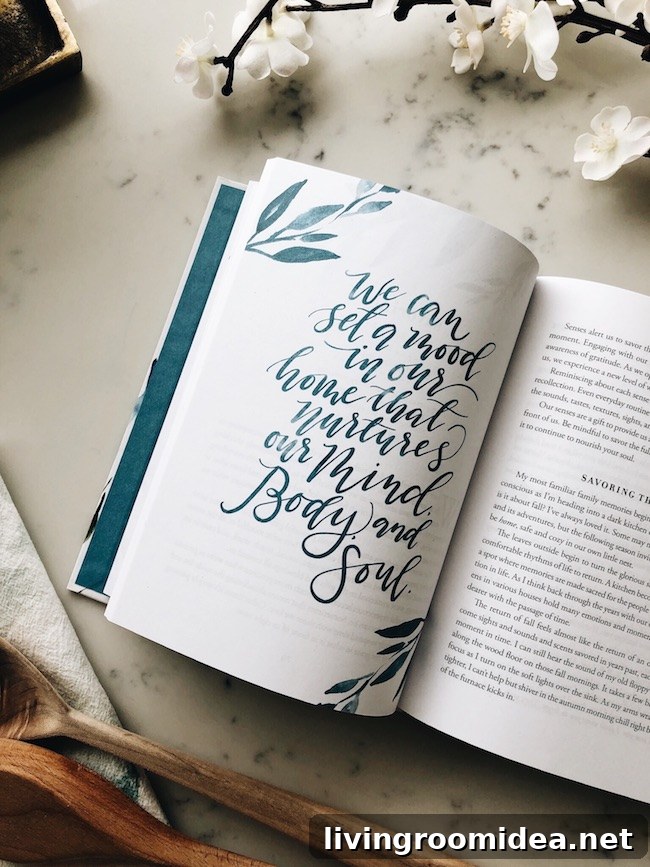 We can
set a mood
in our
home that
nurtures
our Mind,
Body, and
Soul.
Senses alert us to savor the
moment. Engaging with our
awareness of gratitude. As we
us, we experience a new level of
Reminiscing about each
recollection. Even everyday routine
the sounds, tastes, textures, sights, and
Our senses are a gift to provide us
front of us. Be mindful to savor the
it to continue to nourish your soul.
SAVORING
My most familiar family memories
conscious as I'm heading into a dark kitchen
is it about fall? I've always loved it. Some may
and its adventures, but the following season
be home, safe and cozy in our own little nest.
The leaves outside begin to turn the glorious
comfortable rhythms of life to return. A kitchen
a spot where memories are made sacred for the people
tion in life. As I think back through the years with our
ens in various houses hold many emotions and
dearer with the passage of time.
The return of fall feels almost like the return of an
come sights and sounds and scents savored in years past,
moment in time. I can still hear the sound of my old floppy
along the wood floor on those fall mornings. It takes a few
focus as I turn on the soft lights over the sink. As my arms
tighter, I can't help but shiver in the autumn morning chill right
of the furnace kicks in.
livingroomidea.net